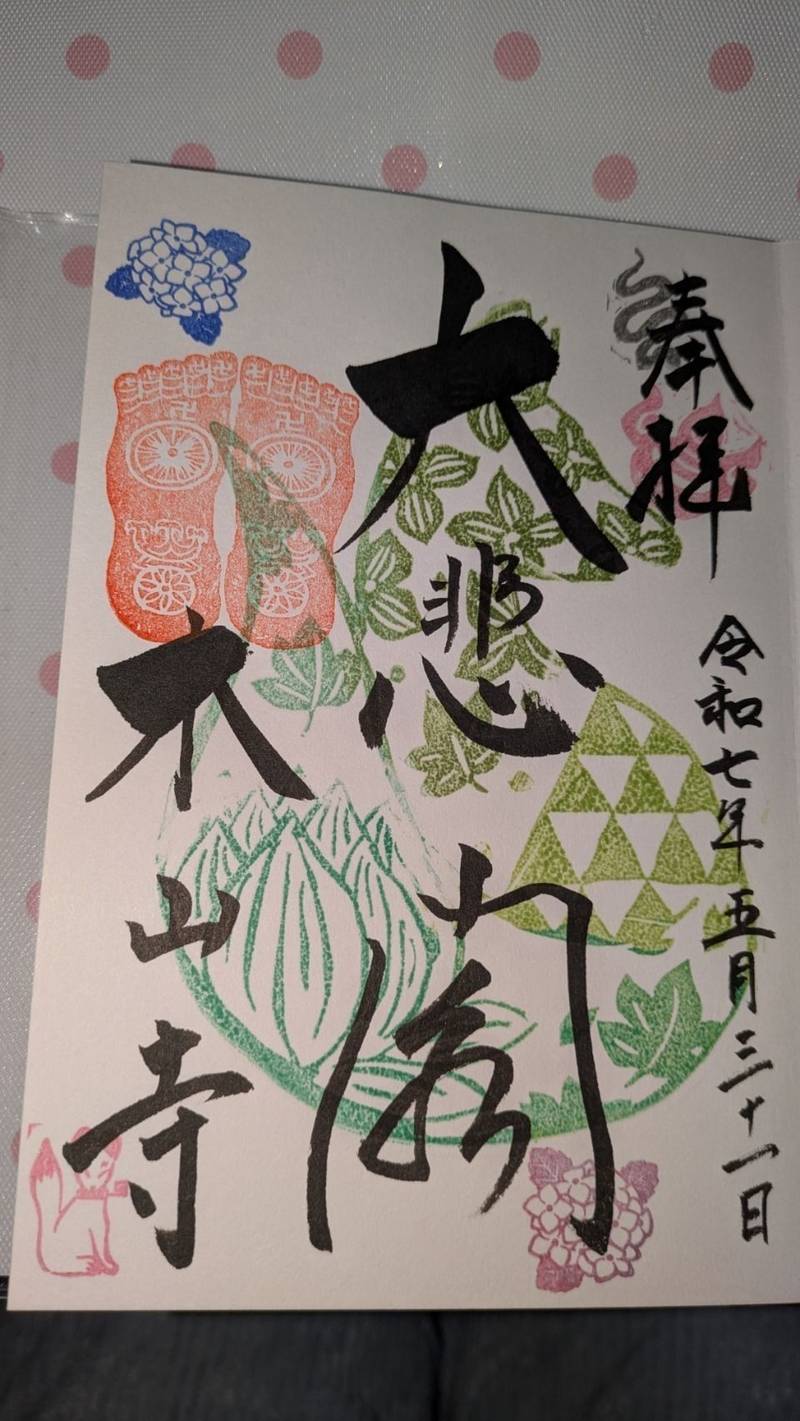 奉拝
令和七年五月三十一日
大悲閣
木山寺